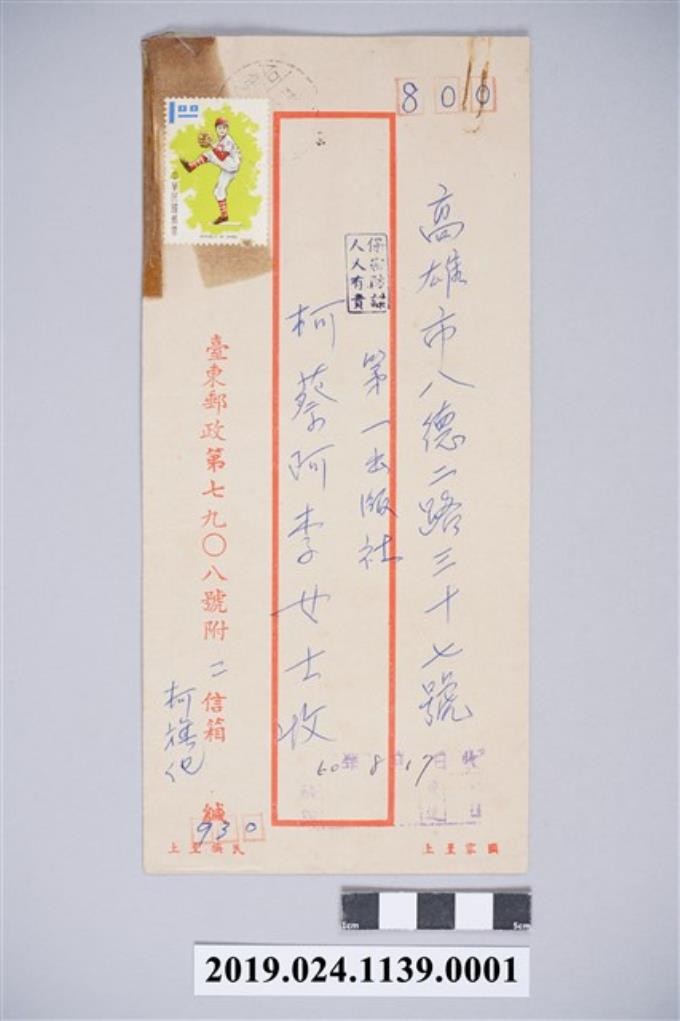 800
高雄市八德二路三十七號
第一出版社
柯蔡阿李女士收
保密防諜
人人有責
1.00
中華民國郵票
REPUBLIC OF CHINA
臺東郵政第七九〇八號附二信箱
柯旗化
緘
930
國家至上
民族至上
60 8 17
5cm
5cm
2019.024.1139.0001